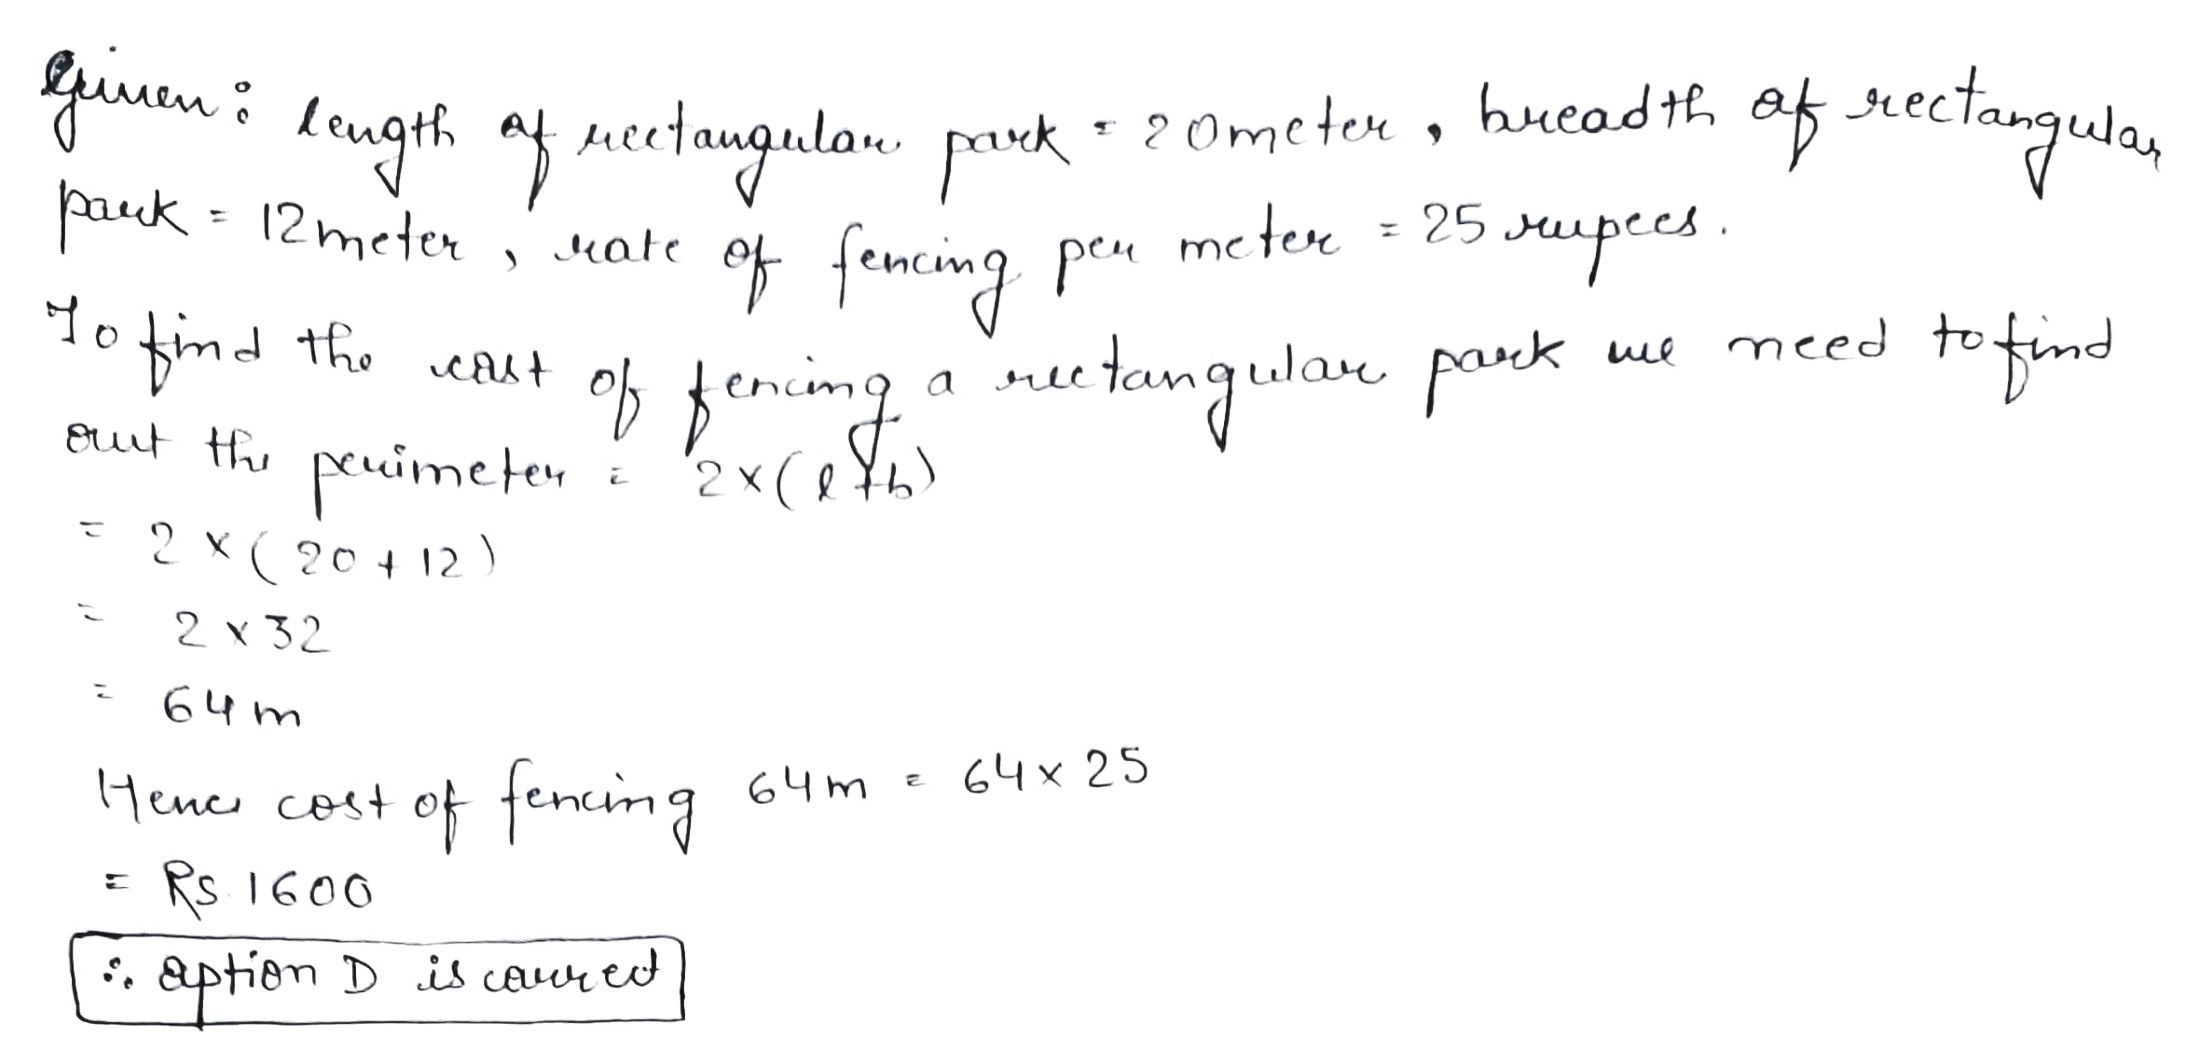 Given: length of rectangular park = 20meter, breadth of rectangular
park = 12meter, rate of fencing per meter = 25 rupees.
To find the cost of fencing a rectangular park we need to find
out the perimeter = 2×(l+b)
= 2×(20+12)
= 2×32
= 64m
Hence cost of fencing 64m = 64×25
= Rs.1600
∴ option D is correct